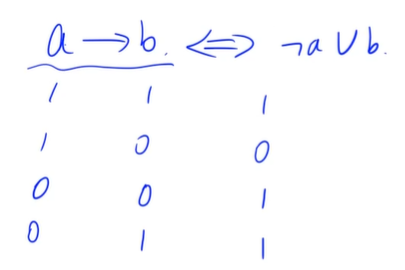 a → b. ⟺ ¬a ∪ b.
1 1 1
1 0 0
0 0 1
0 1 1